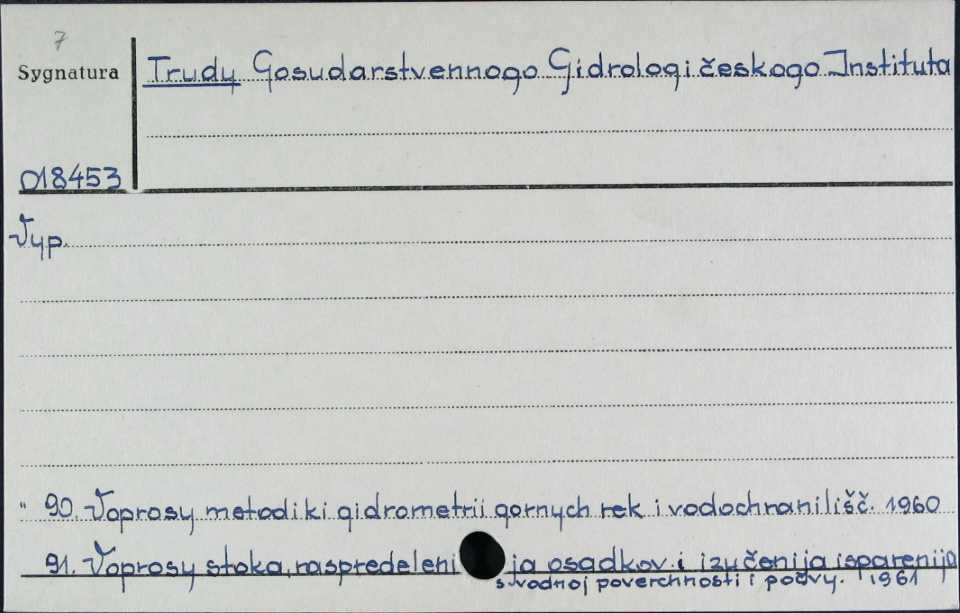 7
Sygnatura
Trudy Gosudarstvennogo Gidrologičeskogo Instituta
D18453
Vyp.
" 90. Voprosy metodiki gidrometrii gornych rek i vodochranilišč. 1960
91. Voprosy stoka, raspredelenija osadkov i izučenija isparenija
s vodnoj poverchnosti i počvy. 1961